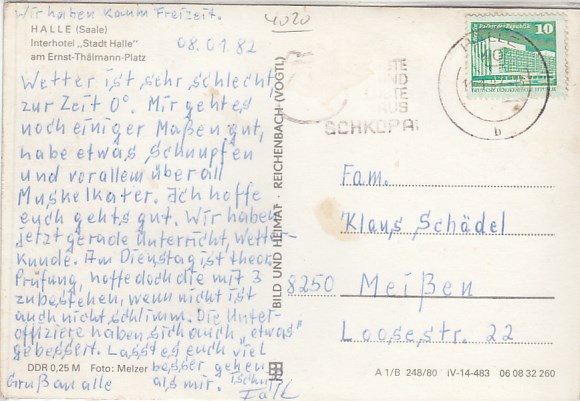 Wir haben kaum Freizeit.
4020
HALLE (Saale)
Interhotel „Stadt Halle"
am Ernst-Thälmann-Platz
08.01.82
Wetter ist sehr schlecht
zur Zeit 0°. Mir geht es
noch einiger Maßen gut,
habe etwas Schnupfen
und vorallem überall
Muskelkater. Ich hoffe
euch gehts gut. Wir haben
jetzt gerade Unterricht, Wetter-
kunde. Am Dienstag ist theor.
Prüfung, hoffe doch die mit 3
zubestehen, wenn nicht ist
auch nicht schlimm. Die Unter-
offiziere haben sich auch „etwas"
gebessert. Lasst es euch viel
besser gehen
als mir. Tschüß
Gruß an alle
Falk
DDR 0,25 M Foto: Melzer
BILD UND HEIMAT · REICHENBACH (VOGTL)
SCHKOPAU
HALLE
b
Palast der Republik
10
DDR
Fam.
Klaus Schädel
8250 Meißen
Loosestr. 22
A 1/B 248/80 IV-14-483 06 08 32 260